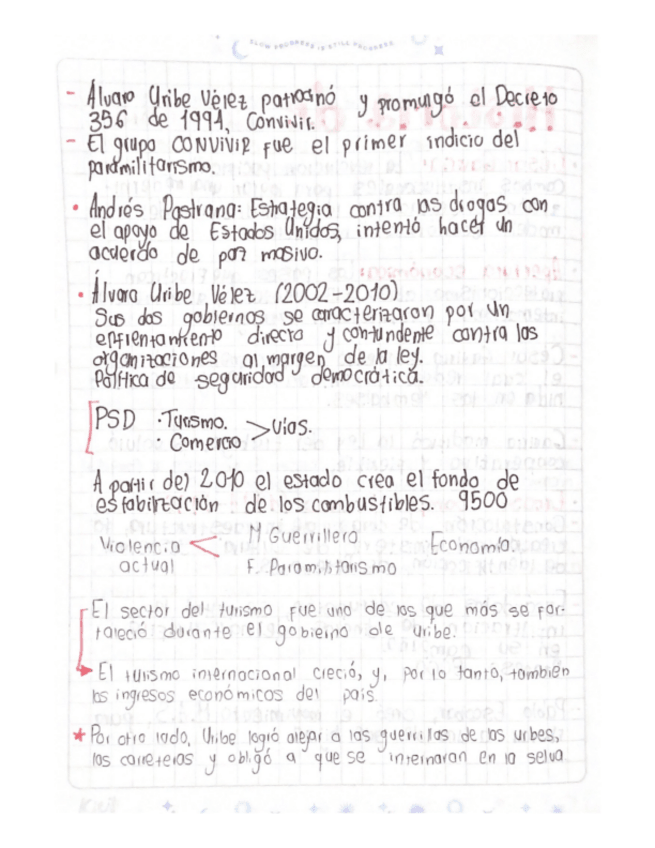 SLOW PROGRESS IS STILL PROGRESS
- Álvaro Uribe Vélez patrocinó y promulgó el Decreto
356 de 1994, Convivir.
- El grupo CONVIVIR fue el primer indicio del
paramilitarismo.
• Andrés Pastrana: Estrategia contra las drogas con
el apoyo de Estados Unidos, intentó hacer un
acuerdo de paz masivo.
• Álvaro Uribe Vélez (2002-2010)
Sus dos gobiernos se caracterizaron por un
enfrentamiento directo y contundente contra las
organizaciones al margen de la ley.
Política de seguridad democrática.
PSD · Turismo. > Vías.
· Comercio
A partir del 2010 el estado crea el fondo de
estabilización de los combustibles. 9500
Violencia actual < M Guerrillero Economía.
F. Paramilitarismo
El sector del turismo fue uno de los que más se for-
taleció durante el gobierno de Uribe.
El turismo internacional creció, y, por lo tanto, también
los ingresos económicos del país.
* Por otro lado, Uribe logró alejar a las guerrillas de las urbes,
las carreteras y obligó a que se internaran en la selva